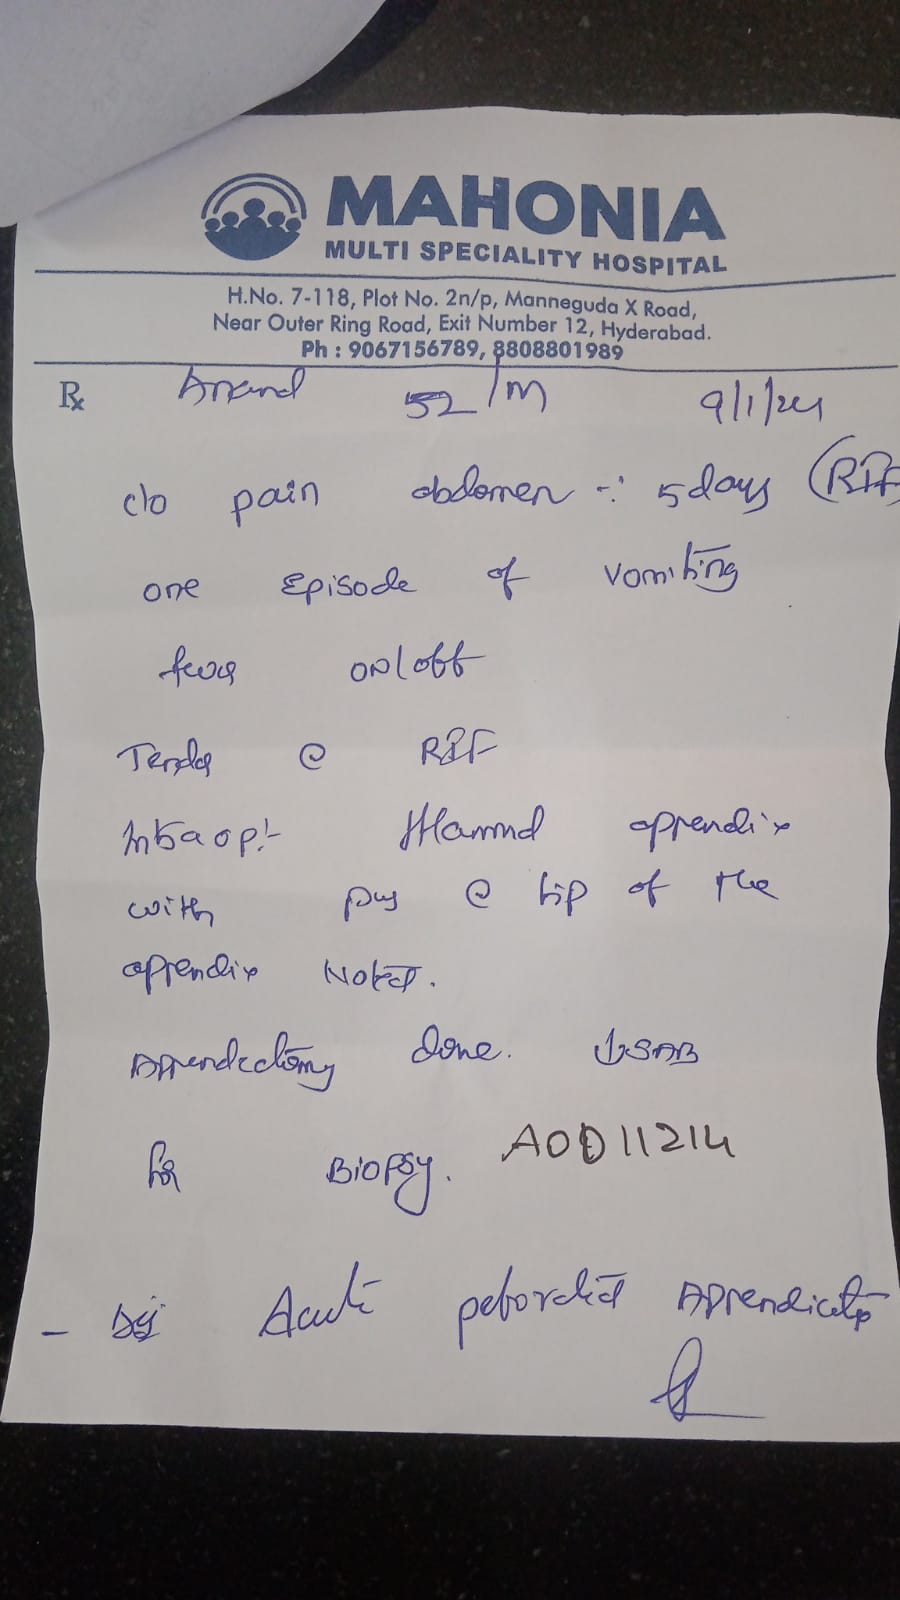 MAHONIA
MULTI SPECIALITY HOSPITAL
H.No. 7-118, Plot No. 2n/p, Manneguda X Road,
Near Outer Ring Road, Exit Number 12, Hyderabad.
Ph : 9067156789, 8808801989
Rx Anand 52/M 9/1/24
c/o pain abdomen -: 5 days (RIF
one Episode of vomiting
fever on/off
Tender @ RIF
Intraop:- Inflammed appendix
with pus @ tip of the
appendix Noted.
Appendectomy done.
for Biopsy. A0011214
- Acute Appendicitis